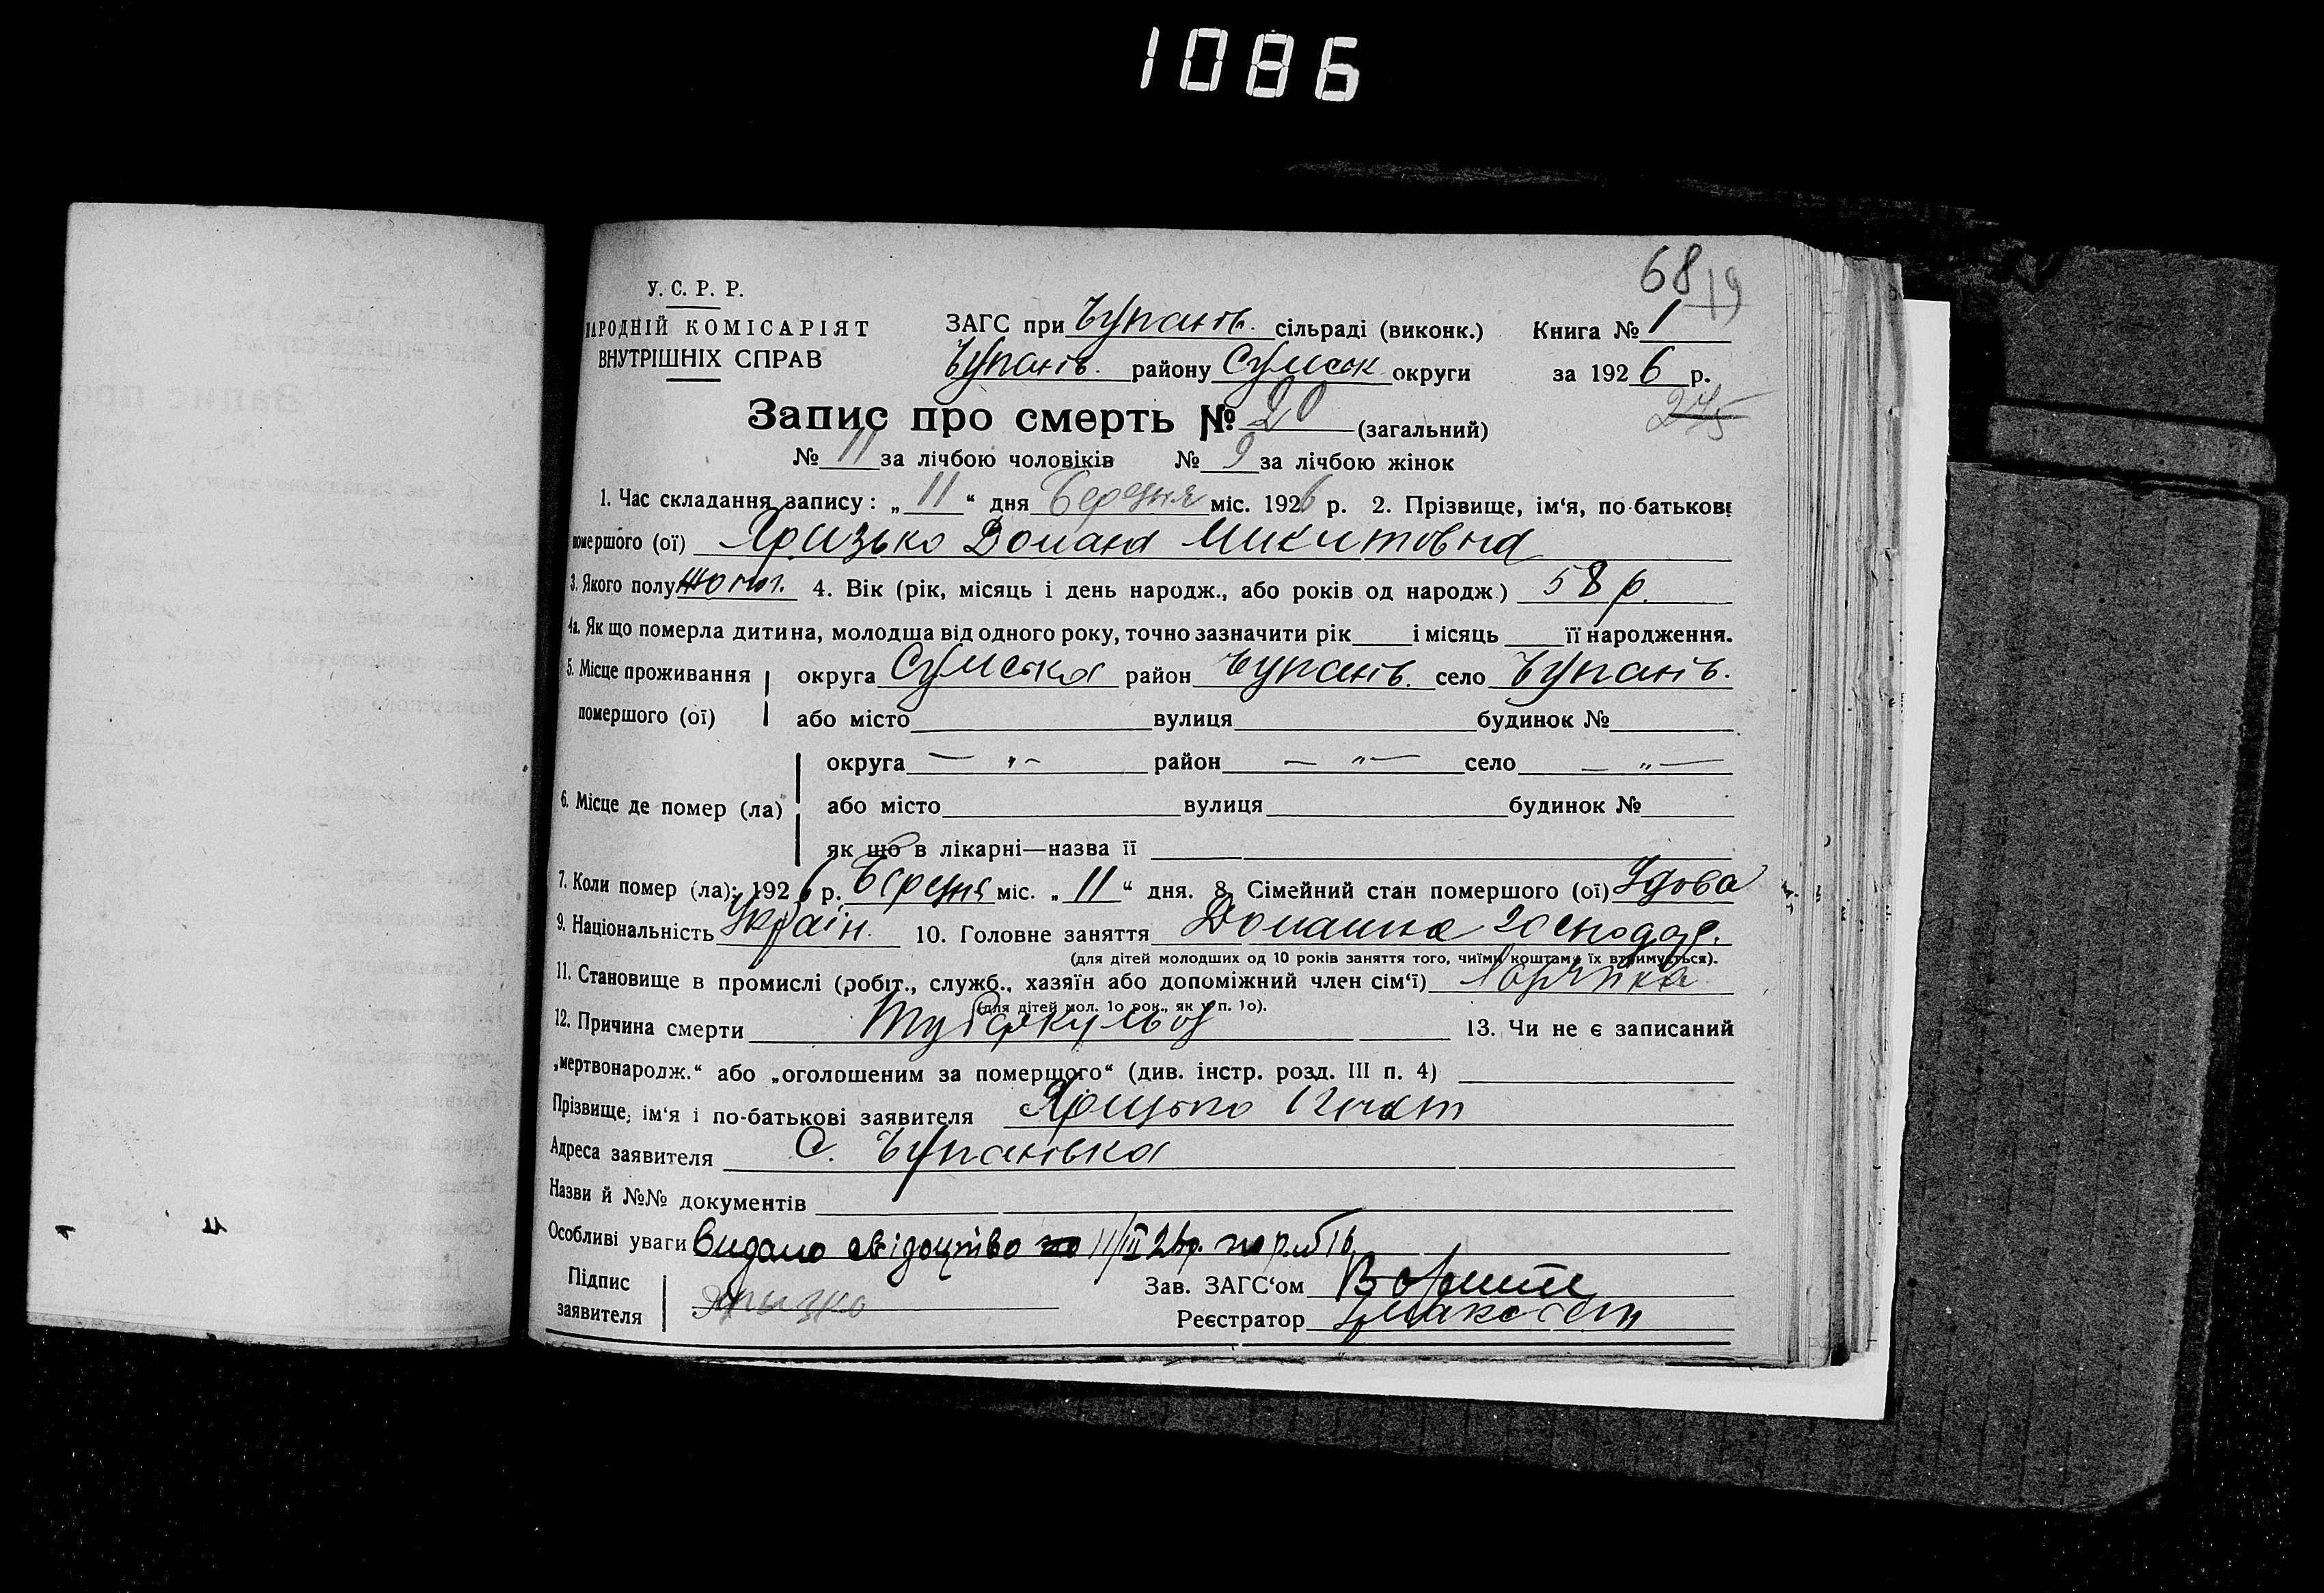 1086
68 19
У. С. Р. Р.
НАРОДНІЙ КОМІСАРІЯТ
ВНУТРІШНІХ СПРАВ
ЗАГС при Чупахів. сільраді (виконк.) Книга № 1
Чупахів. району Сумськ округи за 1926 р.
275
Запис про смерть № 20 (загальний)
№ 11 за лічбою чоловіків № 9 за лічбою жінок
1. Час складання запису: „11“ дня Березня міс. 1926 р. 2. Прізвище, ім‘я, по-батькові
помершого (ої) Яризько Домаха Микитовна
3. Якого полу жіноч. 4. Вік (рік, місяць і день народж., або років од народж) 58 р.
4а. Як що померла дитина, молодша від одного року, точно зазначити рік і місяць її народження.
5. Місце проживання округа Сумська район Чупахів. село Чупахів.
помершого (ої) або місто вулиця будинок №
округа — „ — район — „ — село — „ —
6. Місце де помер (ла) або місто вулиця будинок №
як що в лікарні—назва її
7. Коли помер (ла): 1926 р. Березня міс. „11“ дня. 8. Сімейний стан помершого (ої) Удова
9. Національність Україн. 10. Головне заняття Домашнє господар.
(для дітей молодших од 10 років заняття того, чиїми коштами їх втримується).
11. Становище в промислі (робіт., служб., хазяїн або допоміжний член сім‘ї)
(для дітей мол. 1о рок., як у п. 1о).
12. Причина смерти Туберкульоз 13. Чи не є записаний
„мертвонародж.“ або „оголошеним за помершого“ (див. інстр. розд. III п. 4)
Прізвище, ім‘я і по-батькові заявителя Яризько Гнат
Адреса заявителя С. Чупахівка
Назви й №№ документів
Особливі уваги Видано свідоцтво 11/III 26р.
Підпис
заявителя Яризко
Зав. ЗАГС‘ом
Реєстратор